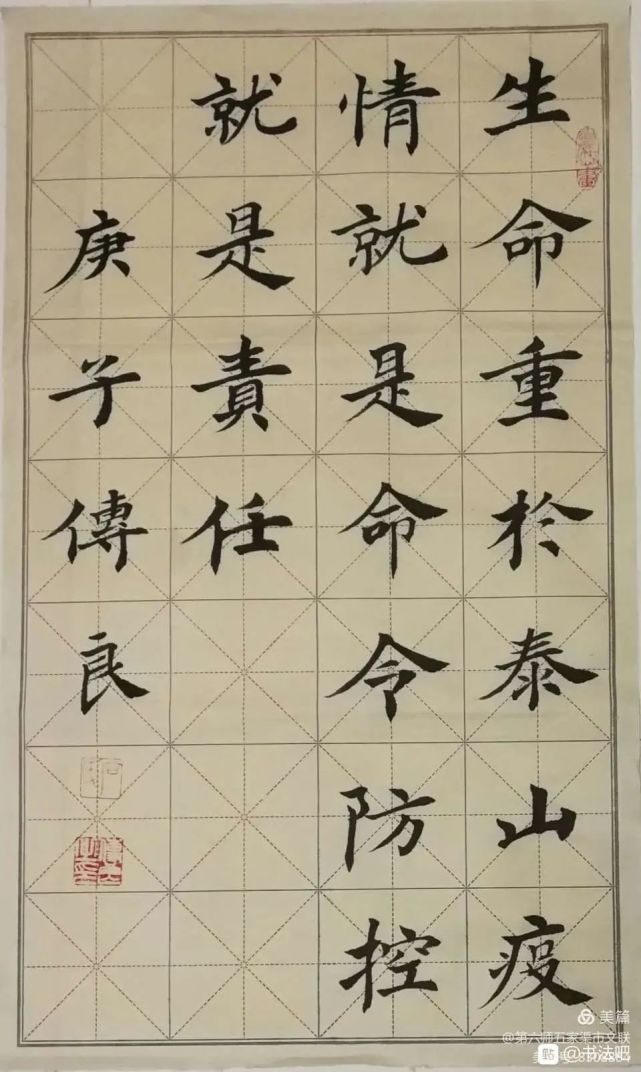 生命重於泰山疫
情就是命令防控
就是責任
庚子傳良
美篇
@第六师石家渠市文联
@书法吧